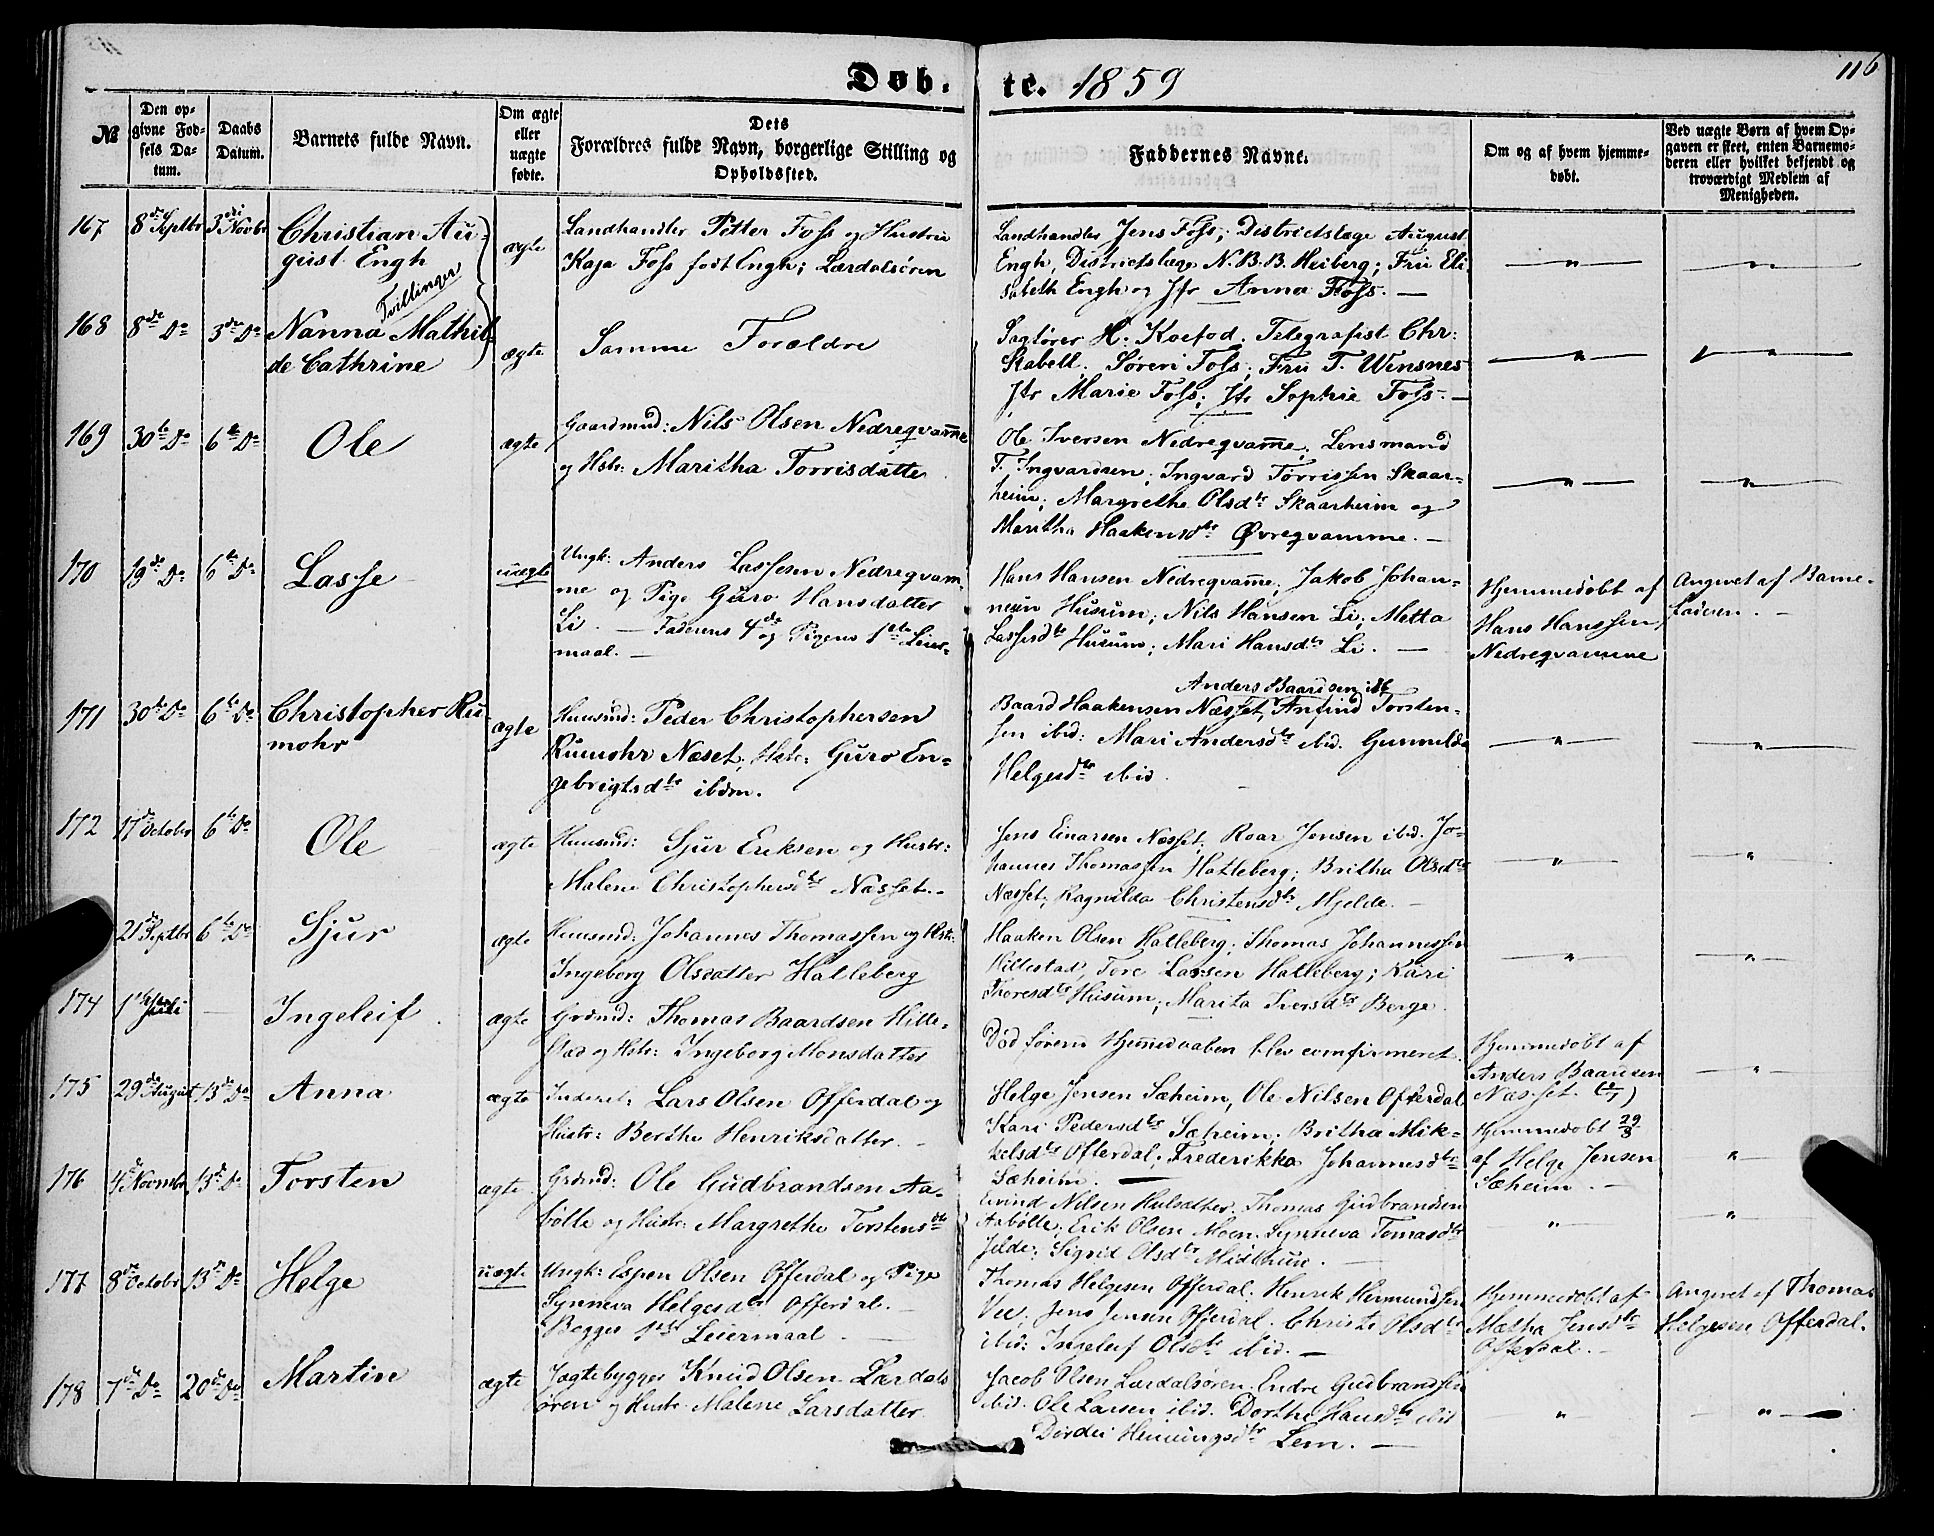 Døb. te. 1859
116
№
Den op-
givne Fød-
sels Da-
tum.
Daabs
Datum.
Barnets fulde Navn.
Om ægte
eller
uægte
fødte.
Dets
Forældres fulde Navn, borgerlige Stilling og
Opholdssted.
Faddernes Navne.
Om og af hvem hjemme-
døbt.
Ved uægte Børn af hvem Op-
gaven er skeet, enten Barnemo-
deren eller hvilket bekjendt og
troværdigt Medlem af
Menigheden.
167 8de Septbr 3die Novbr
Christian Au-
gust Engh
Tvillinger
ægte
Landhandler Petter Foss og Hustru
Kaja Foss født Engh; Lærdalsøren
Landhandler Jens Foss; Districtslæge August
Engh, Districtslæge N. B. B. Heiberg; Fru Eli
sabeth Engh og Jfr Anna Foss. —
168 8de Do 3die Do
Nanna Mathil
de Cathrine
ægte
Samme Forældre
Sagfører H. Koefod. Telegrafist Chr:
Stabell. Søren Foss; Fru T. Wensnes
Jfr Marie Foss; Jfr Sophie Foss. —
169 30te Do 6te Do
Ole
ægte
Gaardmd: Nils Olsen Nedreqvam̅e
og Hstr: Maritha Torrisdatter
Ole Iversen Nedreqvam̅e; Lensmand
T. Ingvardsen; Ingvard Torrissen Skaar-
heim; Margrethe Olsdtr Skaarheim og
Maritha Haakensdtr Øvreqvamme. —
170 19de Do 6te Do
Lasse
uægte
Ungk: Anders Lassesen Nedreqvam
me og Pige Guro Hansdatter
Li. — Faderens 4de og Pigens 1ste Leier-
maal. —
Hans Hansen Nedreqvam̅e; Jakob Johan-
nesen Husum; Nils Hansen Li; Metta
Lassesdtr Husum; Mari Hansdtr Li. —
Hjemmedøbt af
Hans Hanssen
Nedreqvamme
Angivet af Barne-
faderen. —
171 30te Do 6te Do
Christopher Ru
mohr
ægte
Huusmd: Peder Christophersen
Rumohr Næset; Hstr: Guro En-
gebrigtsdtr ibdm.
Anders Baardsen ib
Baard Haakensen Næsset, Anfind Torsten-
sen ibid: Mari Andersdtr ibid. Gunnilda
Helgesdtr ibid.
172 17de October 6te Do
Ole
ægte
Huusmd: Sjur Eriksen og Hustr:
Malene Christophersdtr Næsset.
Jens Einarsen Næsset, Roar Jensen ibid. Jo-
hannes Thomassen Hatleberg; Britha Olsdtr
Næsset; Ragnilda Christensdtr Mjelde. —
21de Septbr 6te Do
Sjur
ægte
Huusmd: Johannes Thomassen og Hstr:
Ingeborg Olsdatter Hatleberg
Haaken Olsen Hatleberg. Thomas Johannessen
Hillestad, Tore Larsen Hatleberg; Kari
Thoresdtr Husum; Marita Iversdtr Berge
174 1ste Juli —
Ingeleif.
ægte
Grdmd: Thomas Baardsen Hille-
stad og Hstr: Ingeborg Monsdatter
Død førend Hjem̅edaaben blev comfirmeret.
Hjemmedøbt af
Anders Baardsen
Næsset.
175 29de August 13de Do
Anna
ægte
Inderst: Lars Olsen Offerdal og
Hustr: Berthe Henriksdatter. —
Helge Jensen Sæheim, Ole Nilsen Offerdal
Kari Pedersdtr Sæheim; Britha Mik-
kelsdtr Offerdal; Frederikka Johannesdtr
Sæheim. —
Hjemmedøbt 29/8
af Helge Jensen
Sæheim. —
176 4de Novembr 13de Do
Torsten
ægte
Grdmd: Ole Gudbrandsen Aa-
bølle og Hustr: Margrethe Torstensdtr
Eivind Nilsen Hulsather. Thomas Gudbrandsen
Aabølle; Erik Olsen Moen. Synneva Tomasdtr
Jelde; Sigrid Olsdtr Midthun. —
177 8de Octobr 13de Do
Helge
uægte
Ungk: Espen Olsen Offerdal og Pige
Synneva Helgesdtr Offerdal. —
Begges 1ste Leiermaal —
Thomas Helgesen Offerdal. Henrik Hermundsen
Vee; Jens Jensen Offerdal. Christi Olsdtr
ibid: Ingeleif Olsdtr ibid. —
Hjemmedøbt af
Mætha Jensdtr
Offerdal. —
Angivet af Thomas
Helgesen Offerdal.
178 7de Do 20de Do
Martin
ægte
Jægtebygger Knud Olsen Lærdals
øren og Hustr Malene Larsdatter
Jacob Olsen Lærdalsøren. Endre Gudbrandsen
ibid. Ole Larsen ibid. Dorthe Hansdtr ibid
Dordei Henningsdtr Lem. —